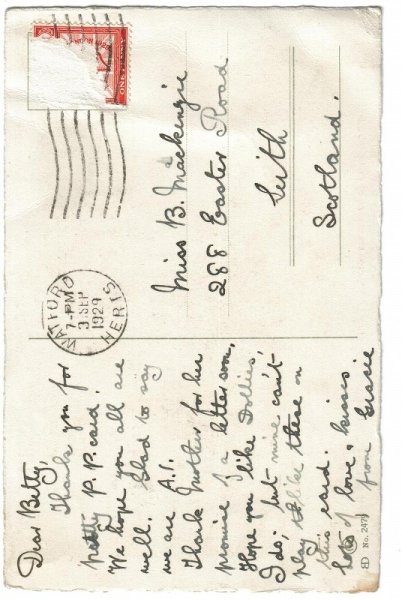 Dear Betty,
Thank you for
pretty P.P. card.
We hope you all are
well. Glad to say
we are A.1.
Thank Mother for her
promise of a letter soon.
Hope you like Dollies,
I do, but mine can't
play like these on
this card.
lots of love & kisses
from Gracie
No. 2473
WATFORD
7-PM
3 SEP
1929
HERTS
ONE PENNY
Miss B. Mackenzie
288 Easter Road
Leith
Scotland.